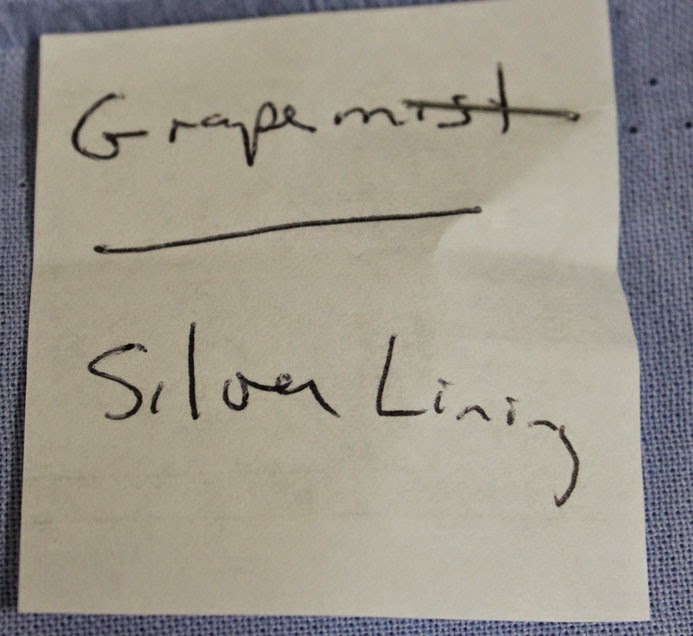 Grape mist
Silver Lining